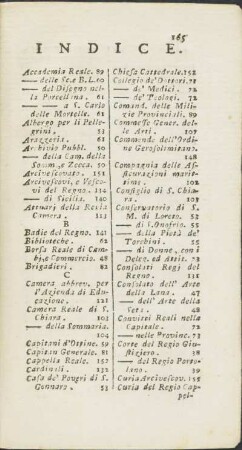 265
INDICE.
Accademia Reale. 59
—— delle Sc.e B.L.60
—— del Disegno nel-
la Porcellana. 61
—— a S. Carlo
delle Mortelle. 61
Albergo per li Pelle-
grini. 53
Arazzeria. 61
Archivio Pubbl. 50
—— della Cam. della
Somm. e Zecca. 50
Arcivescovato. 151
Arcivescovi, e Vesco-
vi del Regno. 114
—— di Sicilia. 140
Attuarj della Real
Camera. 113
B
Badie del Regno. 141
Biblioteche. 62
Borsa Reale di Cam-
bj, e Commercio. 48
Brigadieri. 82
C
Camera abbrev. per
l'Azienda di Edu-
cazione. 121
Camera Reale di S.
Chiara. 103
—— della Sommaria.
104
Capitani d'Ospine. 59
Capitan Generale. 81
Cappella Reale. 152
Cardinali. 132
Casa de' Poveri di S.
Gennaro. 53
Chiesa Cattedrale. 152
Collegio de' Dottori. 71
—— de' Medici. 72
—— de' Teologi. 72
Comand. delle Mili-
zie Provinciali. 89
Commesse Gener. del-
le Arti. 107
Commende dell'Ordi-
ne Gerosolimitano.
148
Compagnia delle As-
sicurazioni marit-
time. 103
Consiglio di S. Chia-
ra. 103
Conservatorio di S.
M. di Loreto. 55
—— di S. Onofrio. 55
—— della Pietà de'
Torchini. 55
—— di Donne, con i
Deleg. ad essi. 73
Consolati Regj del
Regno. 111
Consolato dell'Arte
della Lana. 47
—— dell'Arte della
Seta. 48
Convitti Reali nella
Capitale. 72
—— nelle Provinc. 73
Corte del Regio Giu-
stiziero. 38
—— del Regio Porto-
lano. 39
Curia Arcivescov. 155
Curia del Regio Cap-
pel-